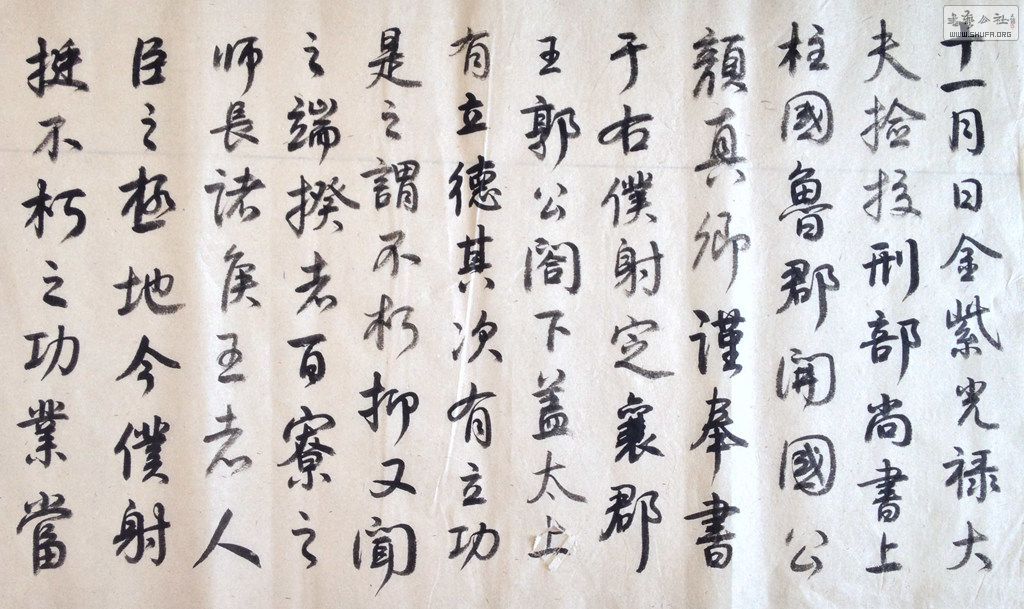 十一月日金紫光禄大
夫撿挍刑部尚書上
柱國魯郡開國公
顏真卿謹奉書
于右僕射定襄郡
王郭公閤下盖太上
有立德其次有立功
是之謂不朽抑又聞
之端揆者百寮之
师長諸侯王者人
臣之極地今僕射
挺不朽之功業當
WWW.SHUFA.ORG